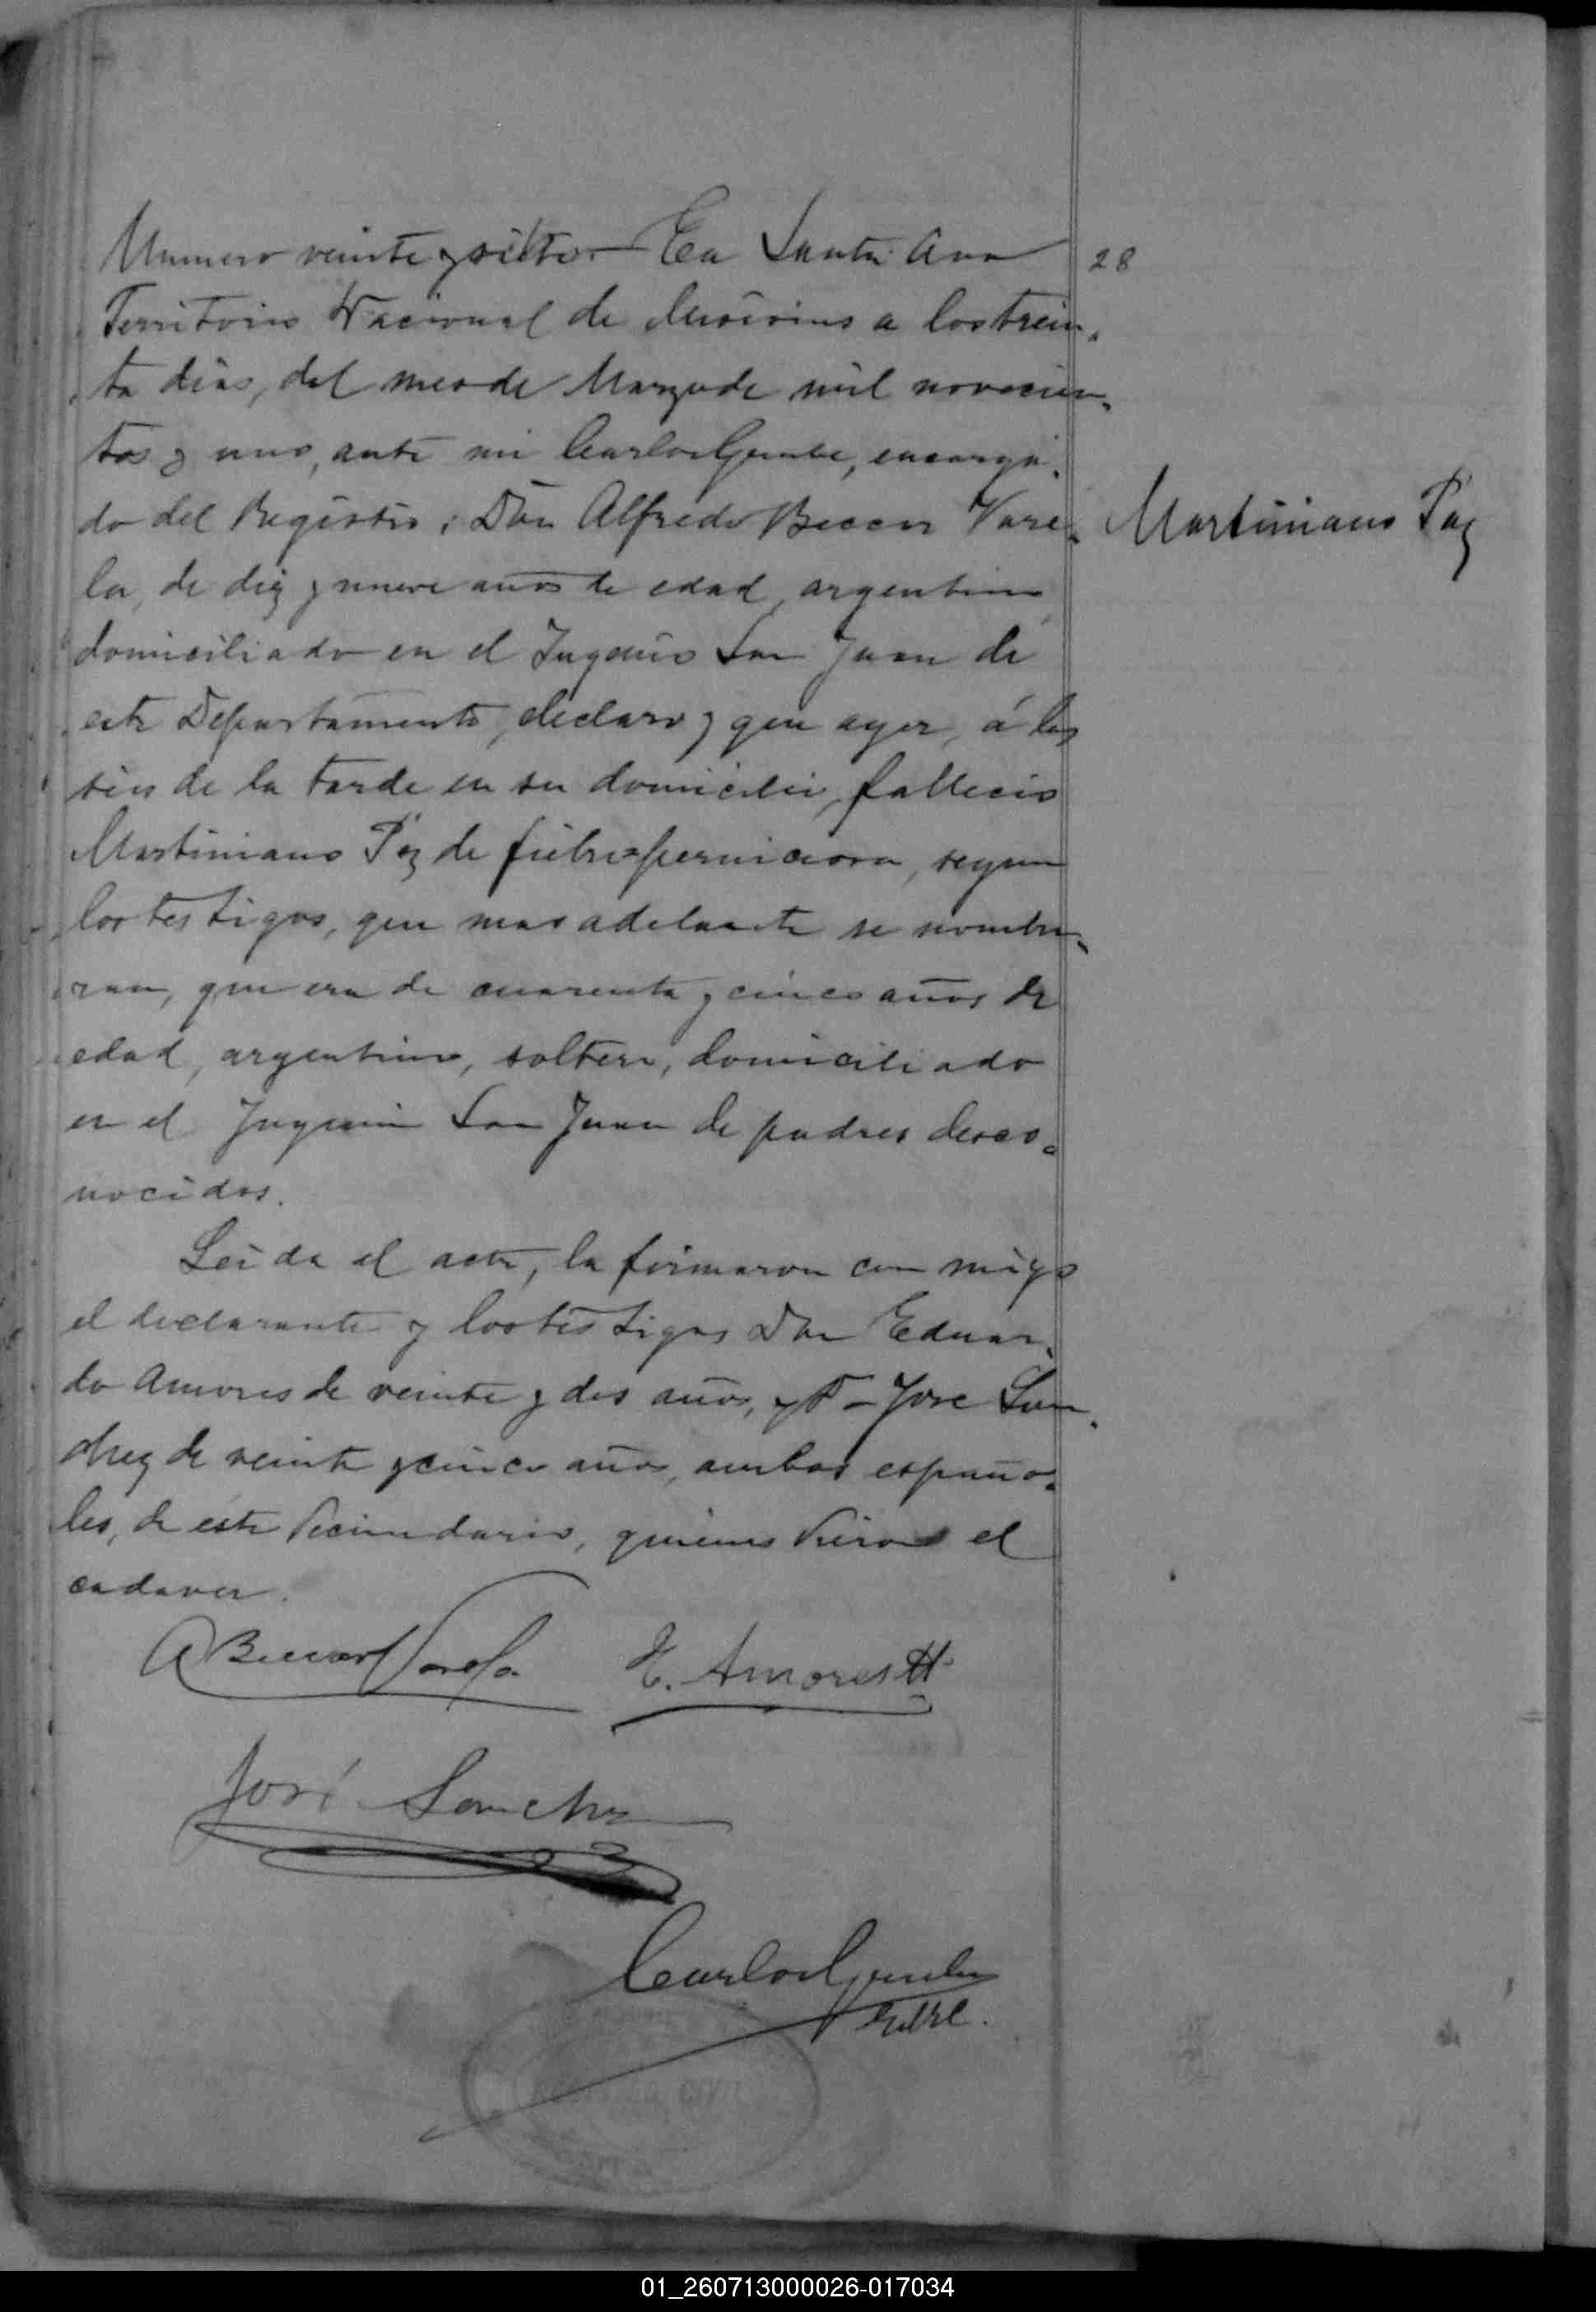 Numero veinte y ocho. En Santa Ana
28
Territorio Nacional de Misiones a los trein-
ta dias, del mes de Marzo de mil novecien-
tos y uno, ante mi Carlos, encarga-
do del Registro; Don Alfredo Beccar Vare-
Martiniano Paz
la, de diez y nueve años de edad, argentino
domiciliado en el Ingenio San Juan de
este Departamento, declaro; que ayer, á las
seis de la tarde en su domicilio, fallecio
Martiniano Paz de fiebre perniciosa, segun
los testigos, que mas adelante se nombra-
ran, que era de cuarenta y cinco años de
edad, argentino, soltero, domiciliado
en el Ingenio San Juan de padres desco-
nocidos.
Leida el acta, la firmaron con migo
el declarante y los testigos Don Eduar-
do Amores de veinte y dos años, y D- Jose San-
chez de veinte y cinco años, ambos españo-
les, de este Vecindario, quienes vieron el
cadaver.
A Beccar Varela E. Amores
José Sanchez
Carlos
REGISTRO CIVIL
01_260713000026-017034